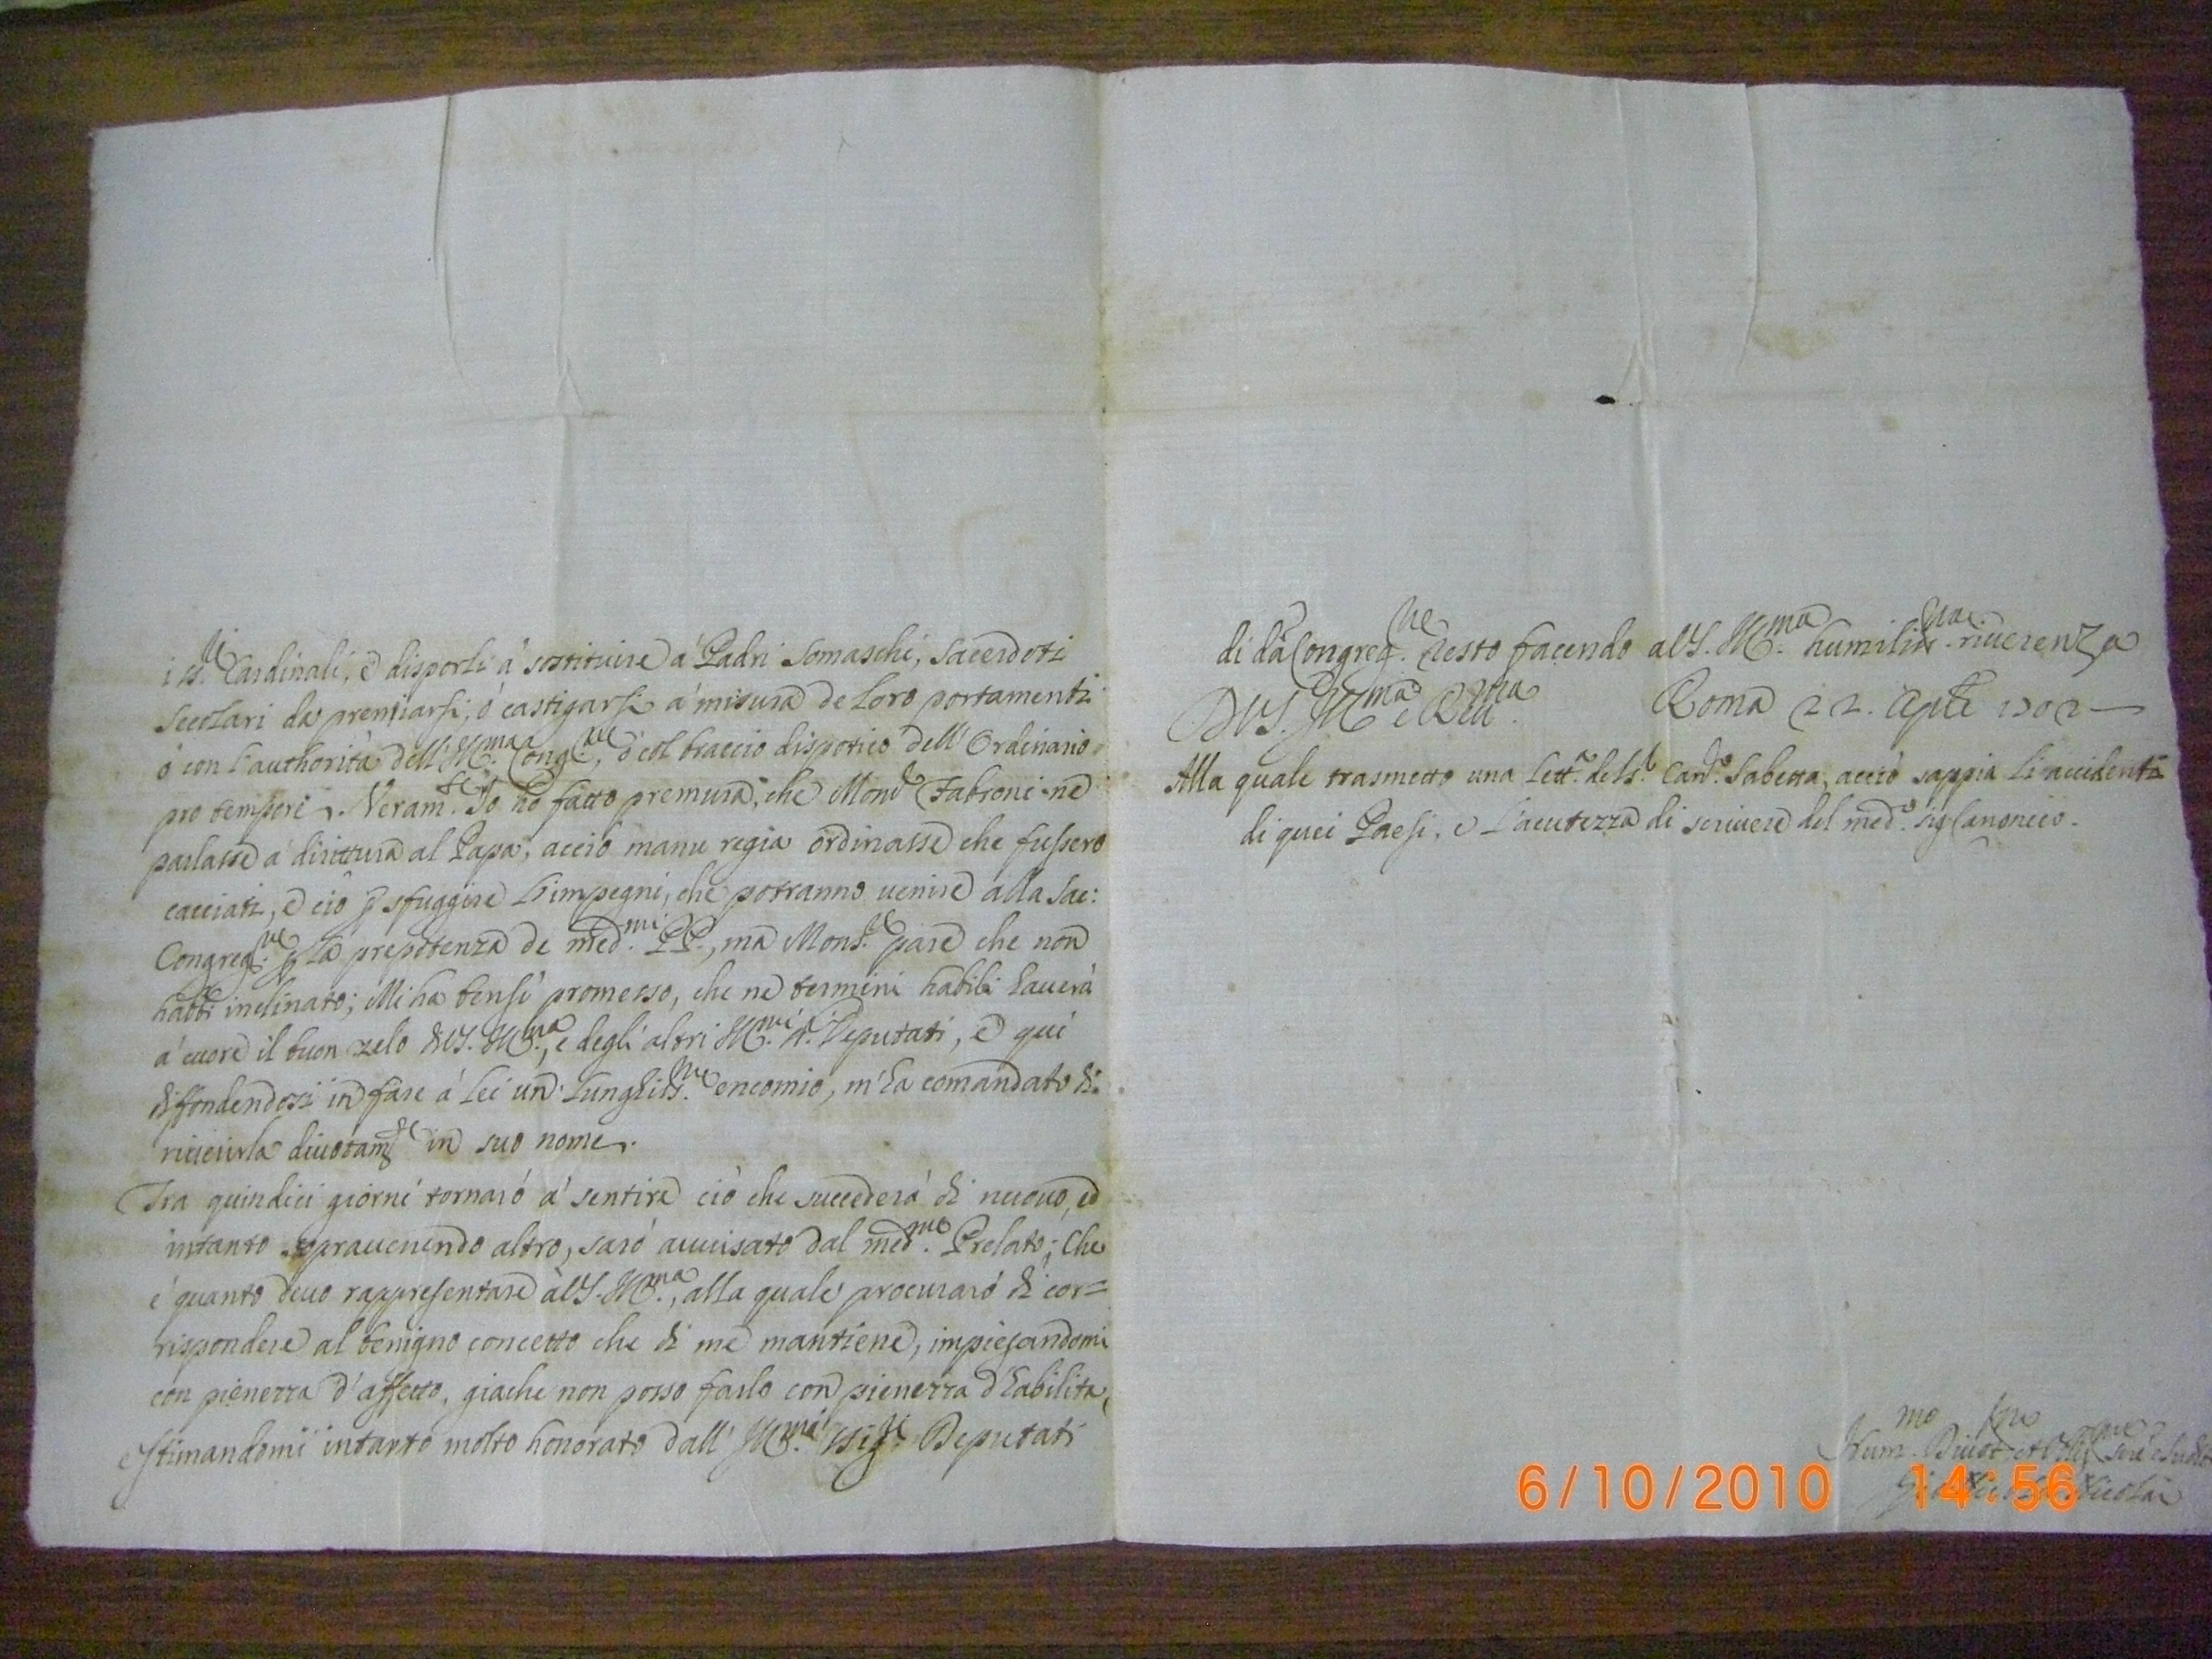 i ss.ri Cardinali, e disporli a' sostituire a' Padri Somaschi, Sacerdoti
secolari da premiarsi, ó castigarsi a' misura de loro portamenti
ó con l'authorità dell' Ill.ma Cong.ne, ó col braccio dispotico dell' Ordinario
pro tempore. Veram.te Io hó fatto premura, che Mons.r Fabroni ne
parlasse a' dirittura al Papa, acció manu regia ordinasse che fussero
cacciati, e ció p sfuggire l'impegni, che potranno uenire alla Sac:
Congreg.ne p la prepotenza de med.mi PP., ma Mons.re pare che non
habbi inclinato; Mi ha bensi promesso, che ne termini habili hauerà
a' cuore il buon zelo di V.S. Ill.ma, e degl' altri Ill.mi ss.ri Deputati, e quì
diffondendosi in fare á Lei un lunghiss.mo encomio, m'ha comandato di
riuerirla diuotam.te in suo nome.
Tra quindici giorni tornaró a' sentire ció che succederá di nuouo, ed
intanto soprauenendo altro, saró auuisato dal med.mo Prelato; Che
é quanto deuo rappresentare à V.S. Ill.ma, alla quale procuraró di cor=
rispondere al benigno concetto che di me mantiene, impiegandomi
con pienezza d'affetto, giache non posso farlo con pienezza d'habilità,
e stimandomi intanto molto honorato dall' Ill.mi ssig.ri Deputati
di da Congreg.ne resto facendo a V.S. Ill.ma humiliss.ma riuerenza
D V.S. Ill.ma e Reu.ma Roma 22. Aple 1702
Alla quale trasmetto una lett.a del s.r Can.co Sabetta, acció sappia li accidenti
di quei Paesi, e l'acutezza di scriuere del med.o sig Canonico.
Hum.mo Diuot.mo et Obl.mo
Nicolai
6/10/2010 14:56